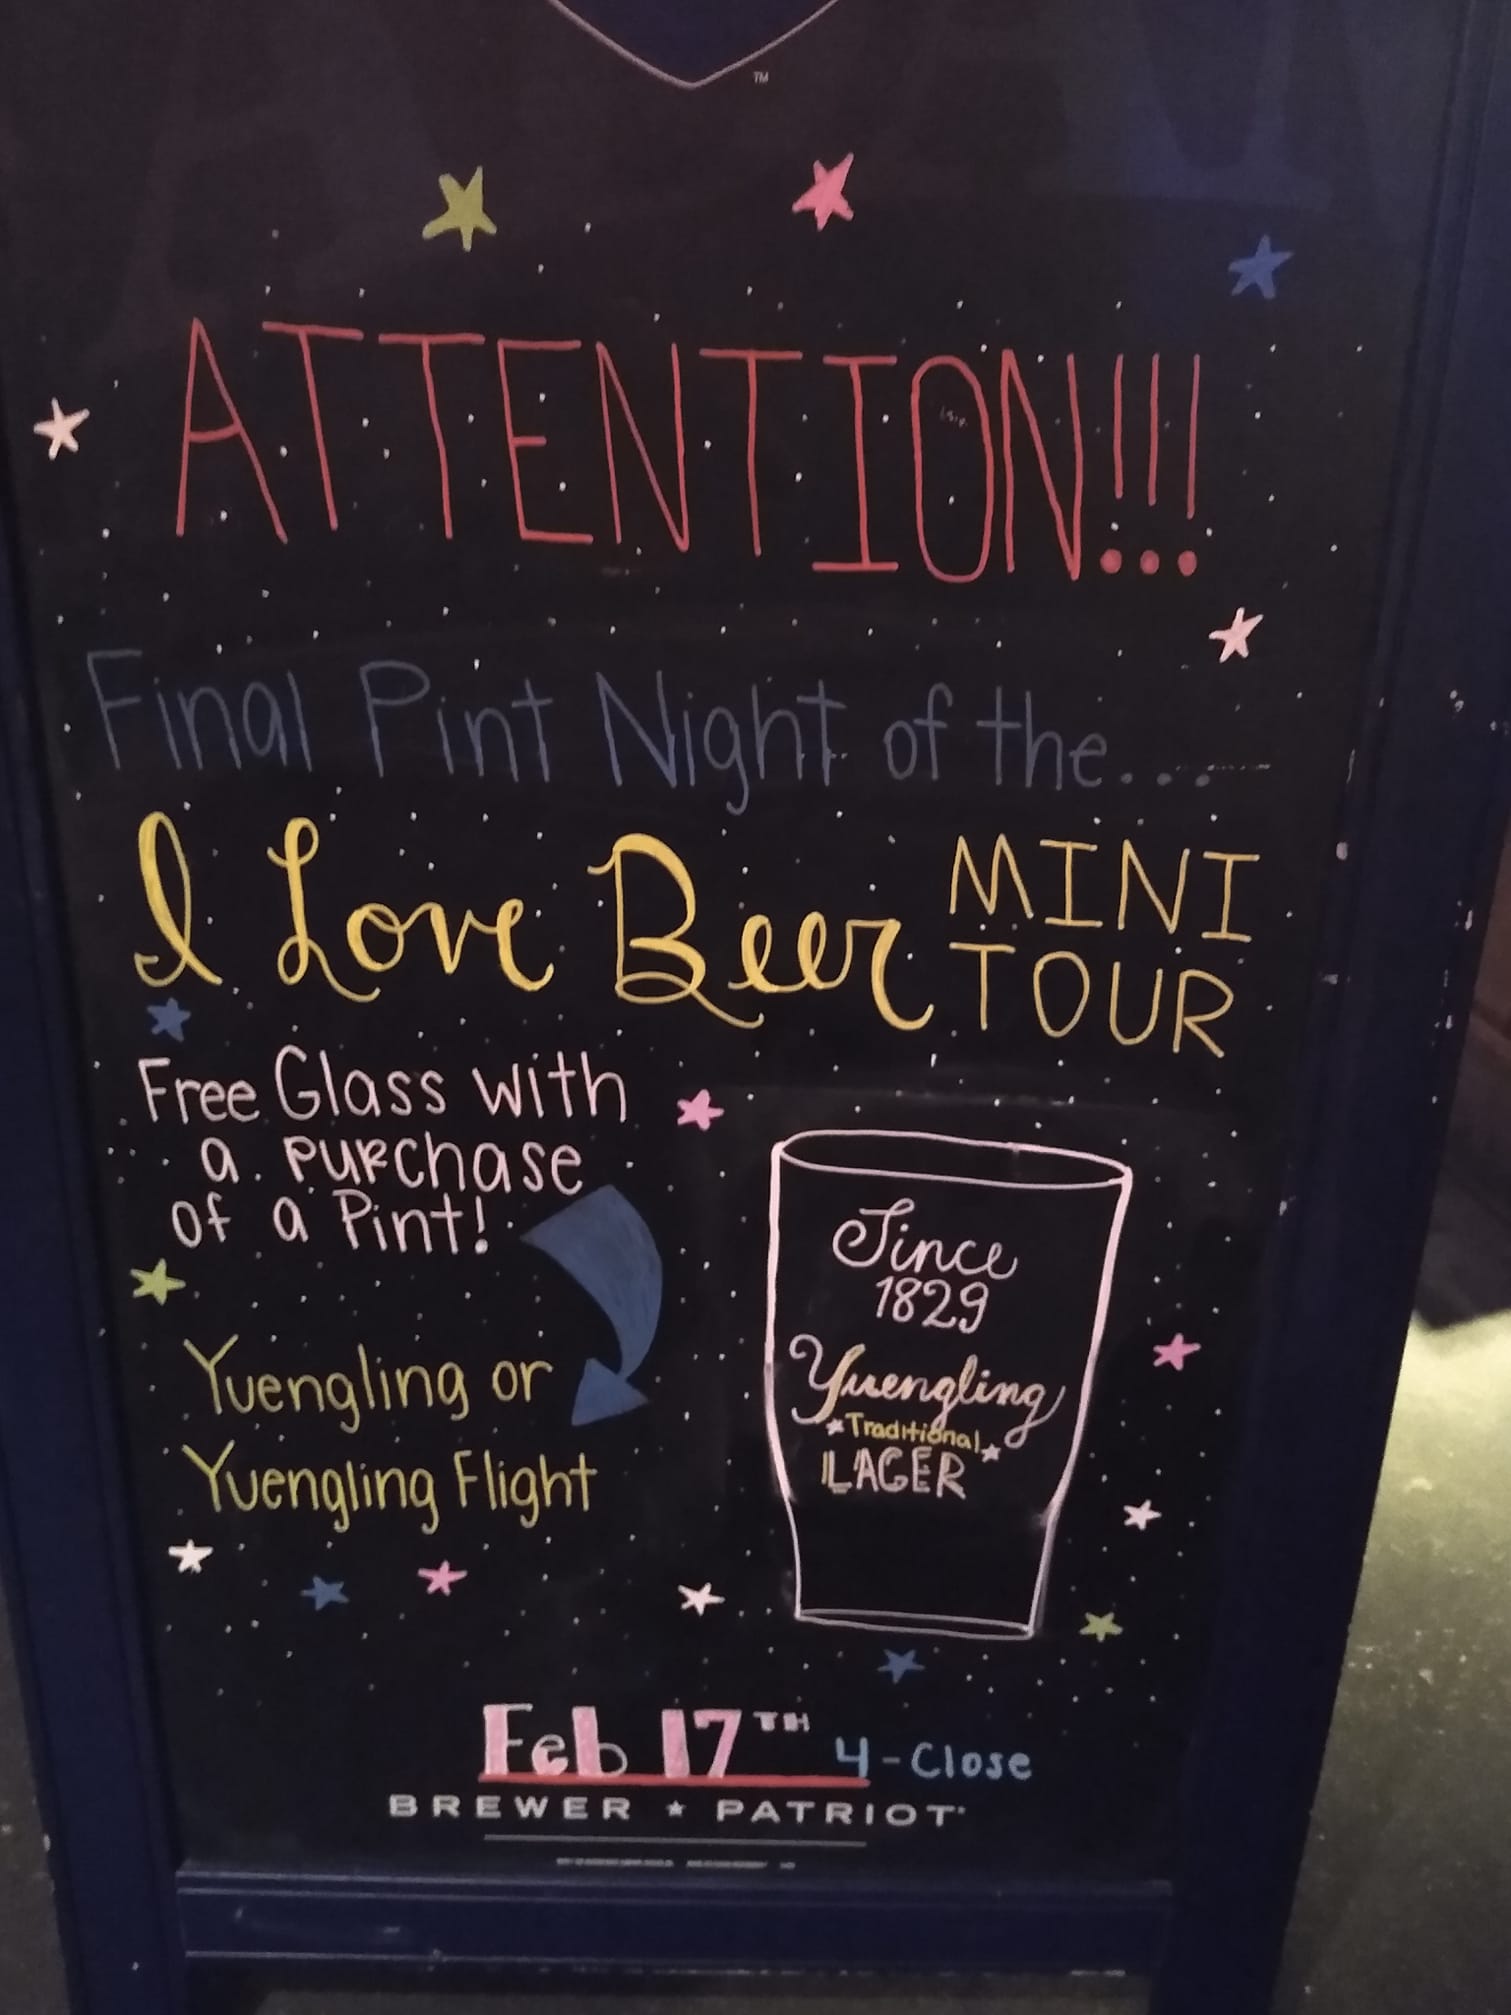 TM
ATTENTION!!!
Final Pint Night of the...
I Love Beer MINI TOUR
Free Glass with
a purchase
of a Pint!
Yuengling or
Yuengling Flight
Since
1829
Yuengling
Traditional
LAGER
Feb 17TH 4-Close
BREWER ★ PATRIOT